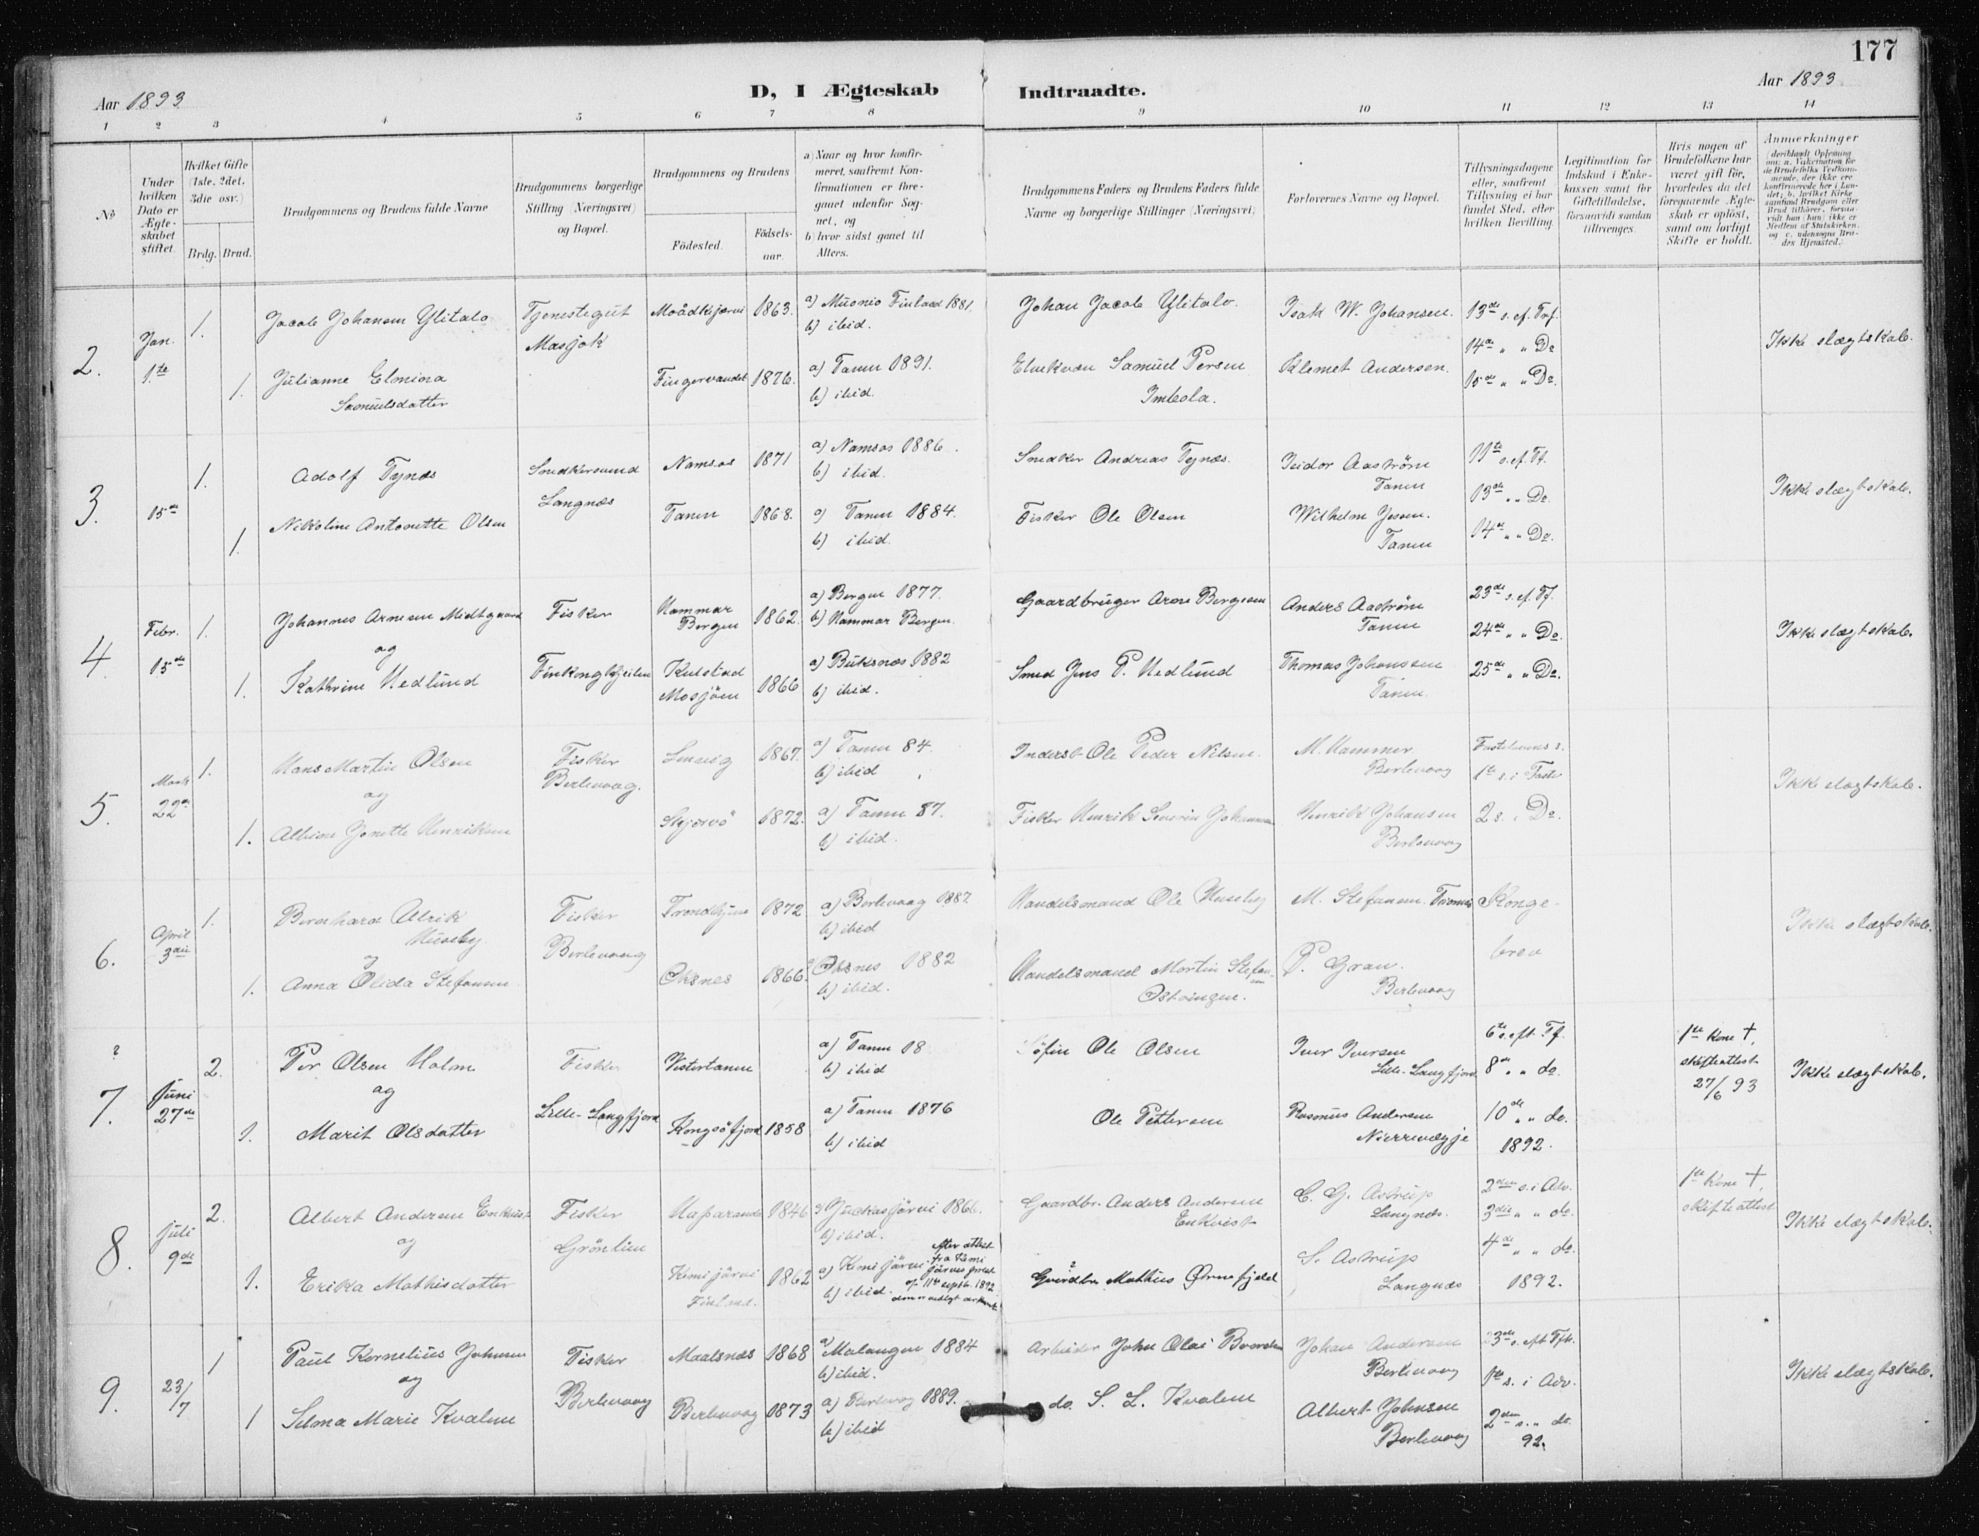 177
Aar 1893
D, I Ægteskab Indtraadte.
Aar 1893
1 2 3 4 5 6 7 8 9 10 11 12 13 14
No
Under hvilken Dato er Ægteskabet stiftet.
Hvilket Gifte (1ste, 2det, 3die osv.)
Brdg. Brud.
Brudgommens og Brudens fulde Navne
Brudgommens borgerlige Stilling (Næringsvei) og Bopæl.
Brudgommens og Brudens
Fødested. Fødselsaar.
a) Naar og hvor konfirmeret, saafremt Konfirmationen er foregaaet udenfor Sognet, og
b) hvor sidst gaaet til Alters.
Brudgommens Faders og Brudens Faders fulde Navne og borgerlige Stillinger (Næringsvei)
Forlovernes Navne og Bopæl.
Tillysningsdagene eller, saafremt Tillysning ei har fundet Sted, efter hvilken Bevilling.
Legitimation for Indskud i Enkekassen samt for Giftetilladelse, forsaavidt saadan tiltrænges.
Hvis nogen af Brudefolkene har været gift før, hvorledes da det foregaaende Ægteskab er opløst, samt om lovligt Skifte er holdt.
Anmerkninger
2. Jan. 1ste
1. Jacob Johansen Ylitalo
Tjenestegut
Masjok
1863.
a) Muonio Finland 1881
b) ibid.
Johan Jacob Ylitalo.
Isak W. Johansen.
13de s. ef. Trf.
14de " " Do
15de " " Do.
Ikke slægtskab.
1. Julianne Elmina
Samuelsdatter
Fingervandet 1876.
a) Tanen 1891.
b) ibid.
Samuel Persen
Imbola.
Klemet Andersen.
3. 15de
1. Adolf Tynæs
Snedkersvend
Langnæs
Namsos 1871
a) Namsos 1886.
b) ibid.
Snedker Andreas Tynæs.
Isidor Aastrøm
Tanen
11te s. ef. Tf.
13de " " Do.
14de " " Do.
Ikke slægtskab.
1. Nikoline Antonette Olsen
Tanen 1868.
a) Tanen 1884.
b) ibid.
Fisker Ole Olsen
Wilhelm Jessen.
Tanen
4. Febr. 15de
1. Johannes Arnesen Midtgaard
og
Fisker
Finkongkjeilen
Hammar
Bergen
1862.
a) Bergen 1877.
b) Hammar Bergen.
Gaardbruger Arne Bergesen
Anders Aastrøm
Tanen
23de s. ef. Tf.
24de " " Do.
25de " " Do.
Ikke slægtskab.
1. Kathrine Hedlund
Kulstad
Mosjøen
1866
a) Buksnæs 1882
b) ibid.
Smed Jens P. Hedlund
Thomas Johanssen
Tanen.
5. Marts 22de
1. Hans Martin Olsen
og
Fisker
Berlevaag.
Lenvig 1867.
a) Tanen 84.
b) ibid
Inderst Ole Peder Nilsen.
M. Hammer
Berlevaag
Fastelavns s.
1te s. i Faste
2 s. i Do.
Ikke slægtskab.
1. Albine Jonette Henriksen
Skjervö 1872.
a) Tanen 87.
b) ibid.
Fisker Henrik Severin Johannesen
Henrik Johansen
Berlevaag
6. April 3die
1. Bernhard Ulrik
Huseby
og
Fisker
Berlevaag
Trondhjem 1872
a) Berlevaag 1887.
b) ibid
Handelsmand Ole Huseby
M. Stefansen Tromsø
Kongebrev
Ikke slægtskab.
1. Anna Olida Stefansen
Øksnes 1866
Øksnes 1882
b) ibid.
Handelsmand Martin Stefansen
P. Gran.
Berlevaag
7. Juni 27de
2. Per Olsen Holm
og
Fisker
Lille-Langfjord
Vestertanen
a) Tanen 18
b) ibid
Ole Olsen
Iver Iversen
Lille-Langfjord
6te s. eft. Tf.
8de " " do.
10de " " do.
1892.
1ste Kone †,
skifteattest
27/6 93
Ikke slægtskab.
1. Marit Olsdatter
Kongsöfjord 1858
a) Tanen 1876
b) ibid
Ole Pettersen
Rasmus Andersen
8. Juli 9de
2. Albert Andersen Enkvist
og
Fisker
Grönlien
Haparanda 1846
Juckasjärvi 1866.
b) ibid.
Gaardbr. Anders Andersen
Enkvist
C. G. Astrup
Langnæs.
2den s. i Adv.
3die " " do.
4de " " do.
1892.
1ste Kone †,
skifteattest
Ikke slægtskab.
1. Erika Mathisdatter
Kemijärvi
Finland.
1862
a) Kemijärvi.
b) ibid.
Efter attest fra Kemijärvis prest af 11te septb. 1892
Gaardbr. Mathias Ørnefjeld
S. Astrup
Langnæs
9. 23/7
1 Paul Kornelius Johnsen
og
Fisker
Berlevaag
Maalsnæs 1868
a) Malangen 1884
b) ibid.
Arbeider John Olai
Johan Andersen
Berlevaag
23de s. eft. Tft.
1te s. i Adv.
2den s. " do.
92.
Ikke slægtskab.
1 Selma Marie Kvalen
Berlevaag 1873
a) Berlevaag 1889.
b) ibid
do. S. L. Kvalen
Albert Johnsen
Berlevaag